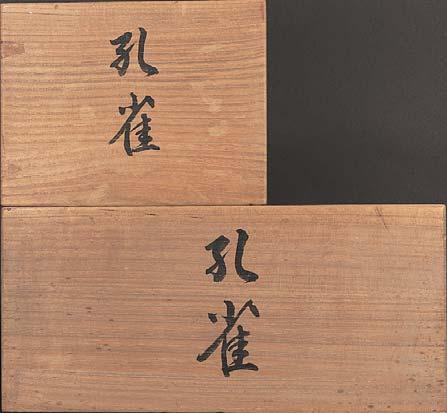 孔雀
孔雀